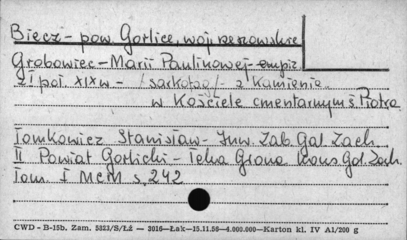 Biecz - pow Gorlice, woj rzeszowskie
Grobowiec - Marii Paulinowej - empir
z I poł. XIX w - /sarkofag/ - z Kamienia
w Kościele cmentarnym ś. Piotra
Tomkowicz Stanisław - Inw. Zab. Gal. Zach.
II Powiat Gorlicki - Teka Grona Kons Gal. Zach.
Tom. I MCM s, 242
CWD - B-15b. Zam. 5823/S/Łż — 3016—Łak—15.11.56—4.000.000—Karton kl. IV A1/200 g